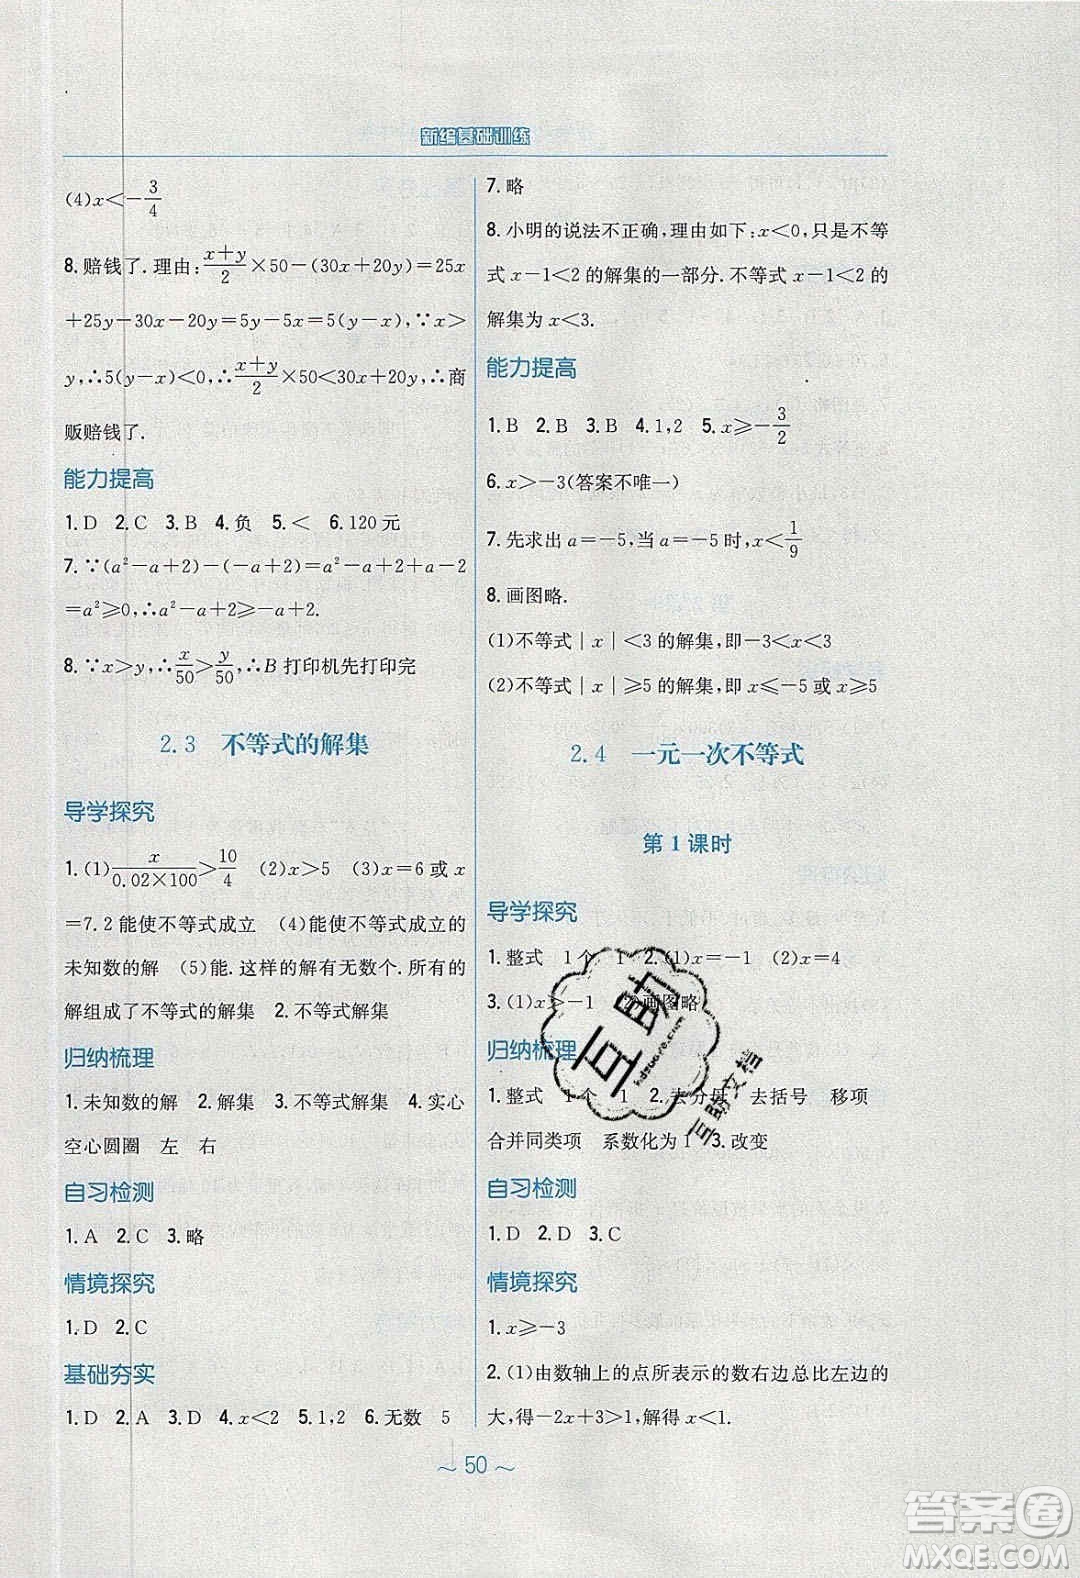 新编基础训练
(4)x<-3/4
8.赔钱了.理由:(x+y)/2×50-(30x+20y)=25x
+25y-30x-20y=5y-5x=5(y-x),∵x>
y,∴5(y-x)<0,∴(x+y)/2×50<30x+20y,∴商
贩赔钱了.
能力提高
1.D 2.C 3.B 4.负 5.< 6.120元
7.∵(a²-a+2)-(-a+2)=a²-a+2+a-2
=a²≥0,∴a²-a+2≥-a+2.
8.∵x>y,∴x/50>y/50,∴B打印机先打印完
2.3 不等式的解集
导学探究
1.(1)x/(0.02×100)>10/4 (2)x>5 (3)x=6或x
=7.2能使不等式成立 (4)能使不等式成立的
未知数的解 (5)能.这样的解有无数个.所有的
解组成了不等式的解集 2.不等式解集
归纳梳理
1.未知数的解 2.解集 3.不等式解集 4.实心
空心圆圈 左 右
自习检测
1.A 2.C 3.略
情境探究
1.D 2.C
基础夯实
1.D 2.A 3.D 4.x<2 5.2 6.无数 5
7.略
8.小明的说法不正确,理由如下:x<0,只是不等
式x-1<2的解集的一部分.不等式x-1<2的
解集为x<3.
能力提高
1.B 2.B 3.B 4.1,2 5.x≥-3/2
6.x>-3(答案不唯一)
7.先求出a=-5,当a=-5时,x<1/9
8.画图略.
(1)不等式|x|<3的解集,即-3<x<3
(2)不等式|x|≥5的解集,即x≤-5或x≥5
2.4 一元一次不等式
第1课时
导学探究
1.整式 1个 1 2.(1)x=-1 (2)x=4
3.(1)x>-1 (2)画图略
归纳梳理
1.整式 1个 1 2.去分母 去括号 移项
合并同类项 系数化为1 3.改变
自习检测
1.D 2.D 3.C
情境探究
1.x≥-3
2.(1)由数轴上的点所表示的数右边总比左边的
大,得-2x+3>1,解得x<1.
~50~
互助
互助文档
答案圈
MXQE.COM